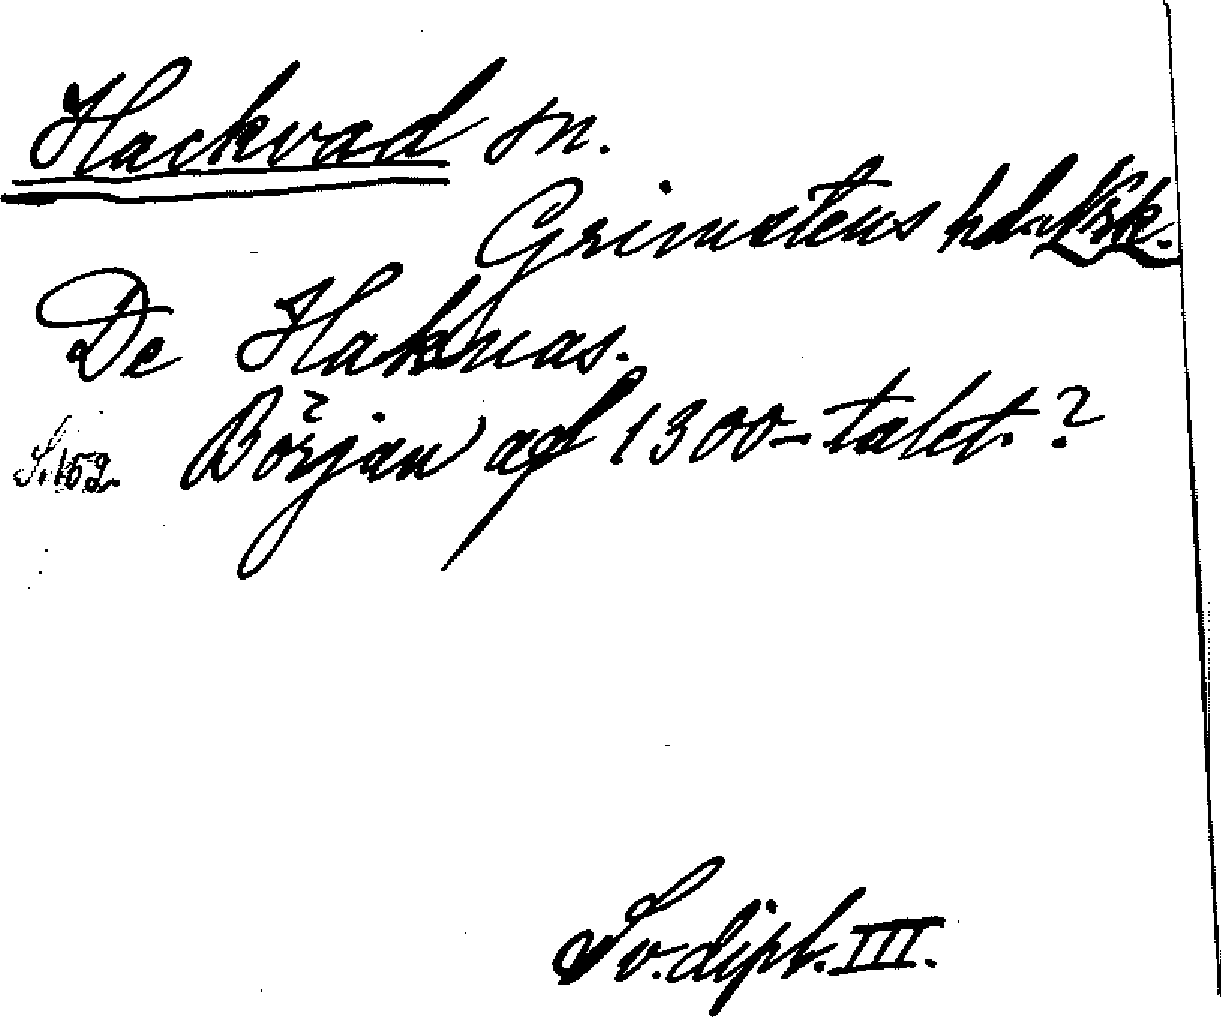 Hackvad sn.
Grimstens hd. Nrk.
De Hakuas.
S. 152. Början af 1300-talet.?
Sv. dipl. III.